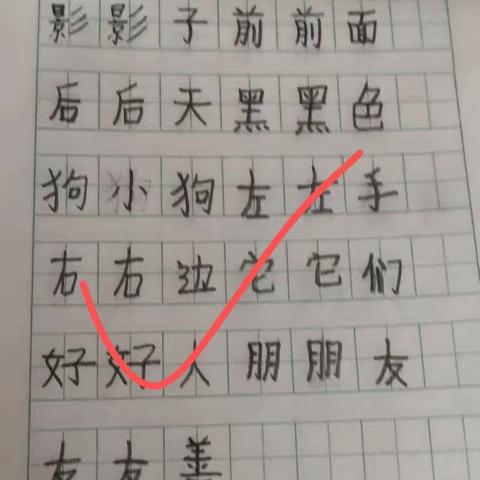 影影子前前面
后后天黑黑色
狗小狗左左手
右右边它它们
好好人朋朋友
友友善